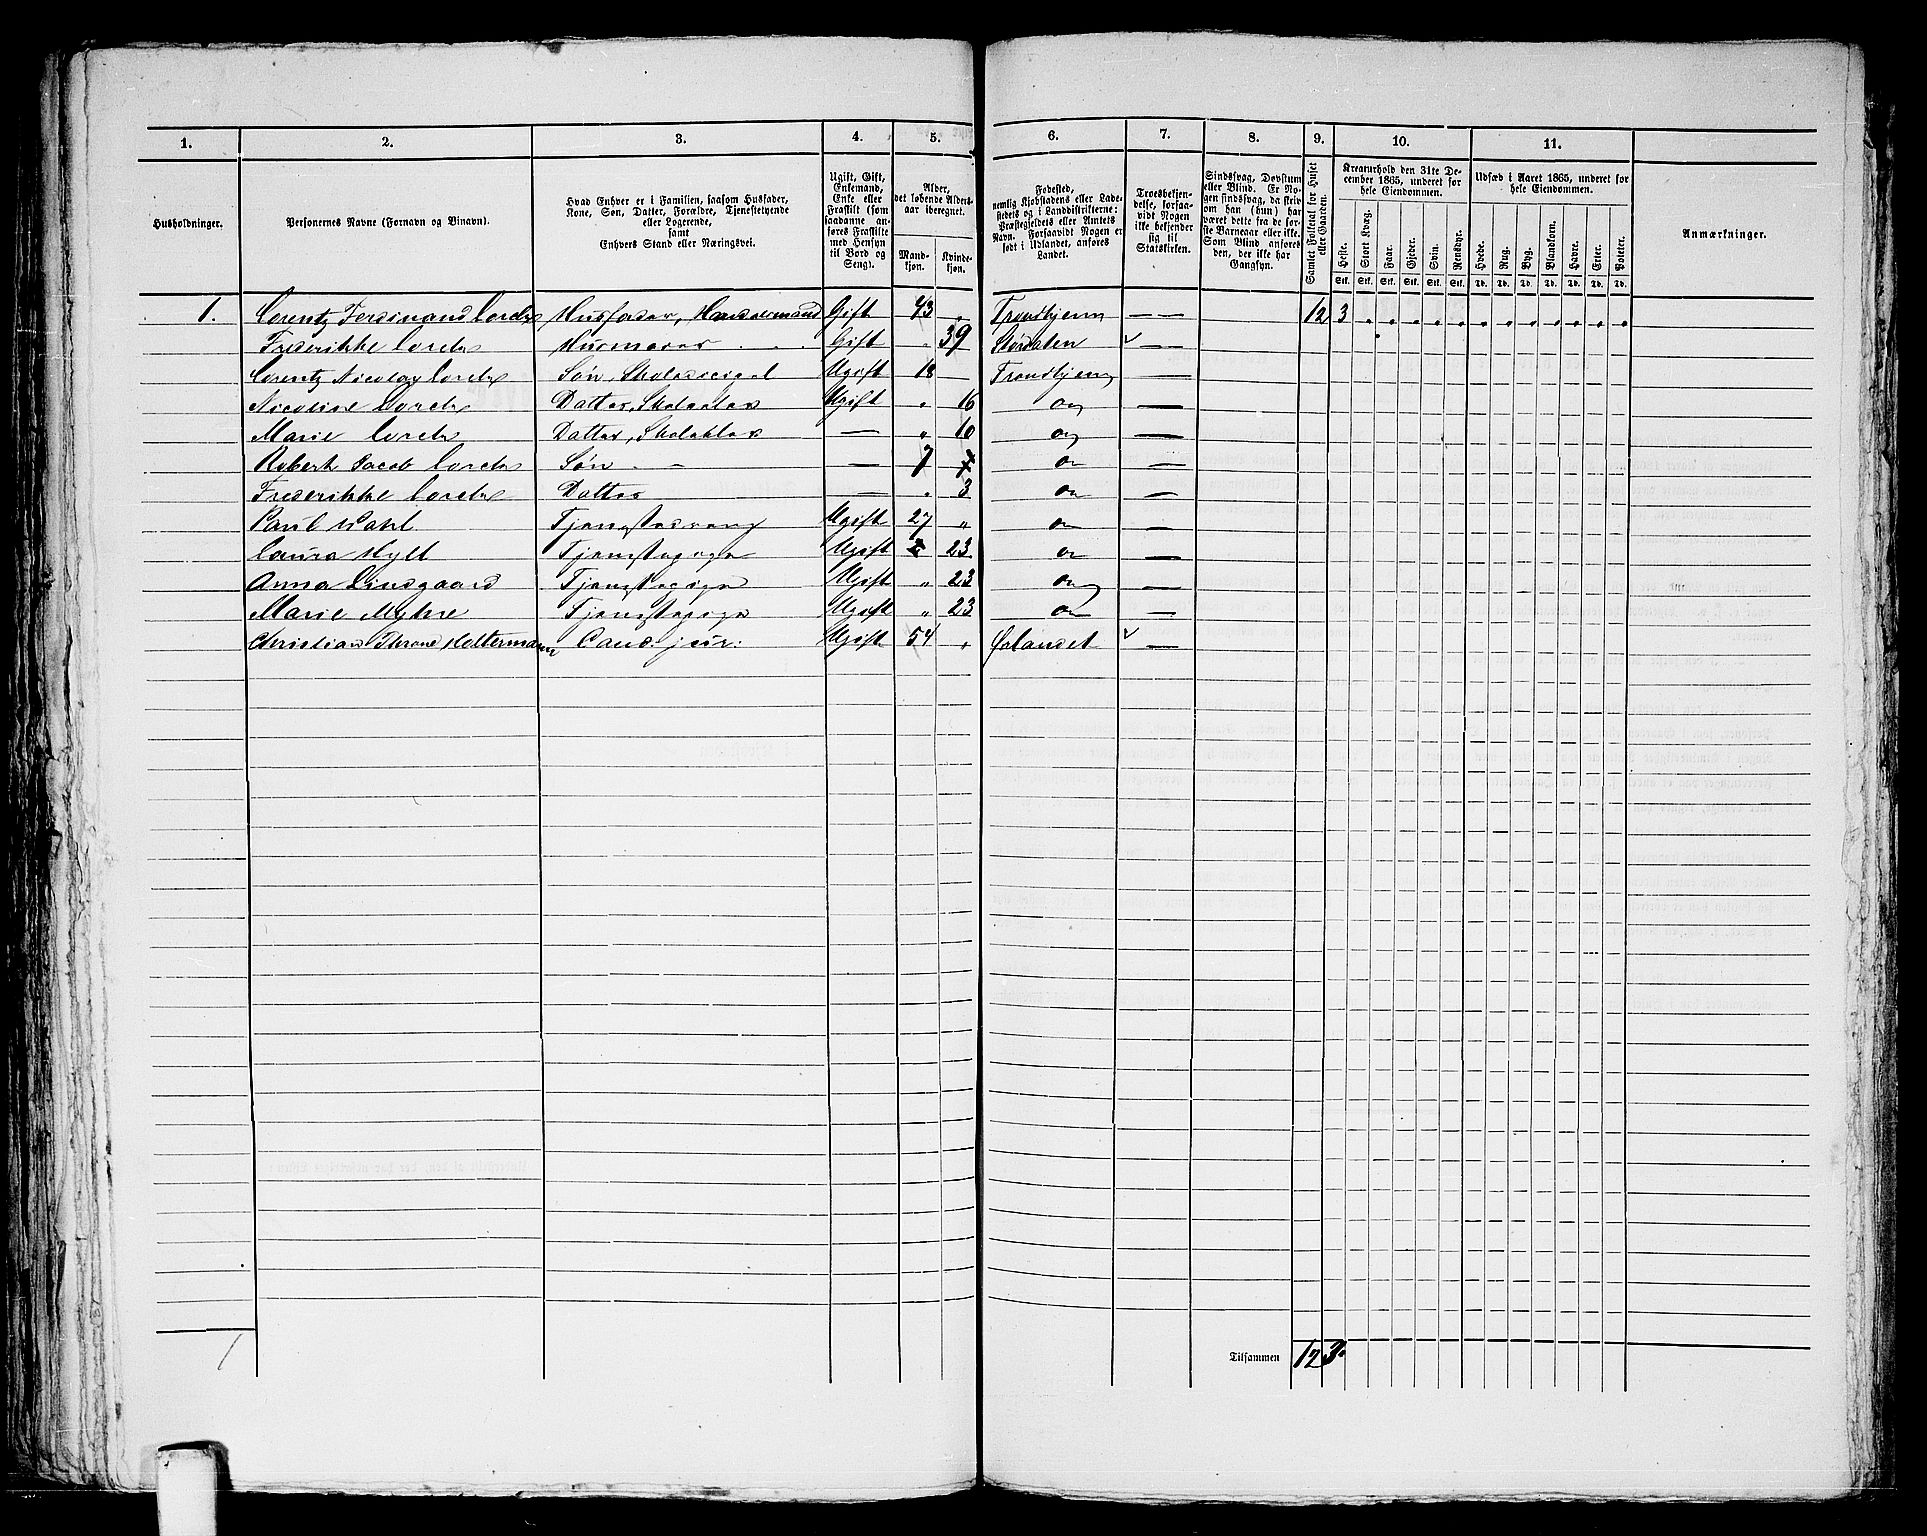 1. 2. 3. 4. 5. 6. 7. 8. 9. 10. 11.
Husholdninger.
Personernes Navne (Fornavn og Binavn).
Hvad Enhver er i Familien, saasom Husfader,
Kone, Søn, Datter, Forældre, Tjenestetyende
eller Logerende,
samt
Enhvers Stand eller Næringsvei.
Ugift, Gift,
Enkemand,
Enke eller
Fraskilt (som
saadanne an-
føres Fraskilte
med Hensyn
til Bord og
Seng).
Alder,
det løbende Alders-
aar iberegnet.
Mand-
kjøn.
Kvinde-
kjøn.
Fødested,
nemlig Kjøbstadens eller Lade-
stedets og i Landdistrikterne:
Præstegjeldets eller Amtets
Navn. Forsaavidt Nogen er
født i Udlandet, anføres
Landet.
Troesbekjen-
delse, forsaa-
vidt Nogen
ikke bekjender
sig til
Statskirken.
Sindssvag, Døvstum
eller Blind. Er No-
gen sindssvag, da skriv
om han (hun) har
været dette fra de før-
ste Barneaar eller ikke.
Som Blind anføres
den, der ikke har
Gangsyn.
Samlet Folketal for Huset
eller Gaarden.
Kreaturhold den 31te De-
cember 1865, underet for
hele Eiendommen.
Heste. Stort Kvæg. Faar. Gjeder. Svin. Rensdyr.
Stk. Stk. Stk. Stk. Stk. Stk.
Udsæd i Aaret 1865, underet for
hele Eiendommen.
Hvede. Rug. Byg. Blandkorn. Havre. Erter. Poteter.
Td. Td. Td. Td. Td. Td. Td.
Anmærkninger.
1. Lorentz Ferdinand Lorck Husfader, Handelsmand Gift 43 „ Trondhjem — — 12 3
Frederikke Lorck Husmoder Gift „ 39 Størdalen —
Lorentz Nicolay Lorck Søn, Skolediscipel Ugift 18 — Trondhjem —
Nicoline Lorck Datter, Ugift „ 16 —
Marie Lorck Datter, — „ 10 —
Robert Jacob Lorck Søn — — 7 —
Frederikke Lorck Datter — „ 3 —
Paul Wahl Ugift 27 „ —
Laura Hylt Tjenestepige Ugift 23 —
Anna Lindgaard Tjenestepige Ugift „ 23 —
Marie Myhre Tjenestepige Ugift „ 23 —
Christian Throne Holtermann Cand: jur: Ugift 54 „ Ørlandet —
1
Tilsammen 12 3